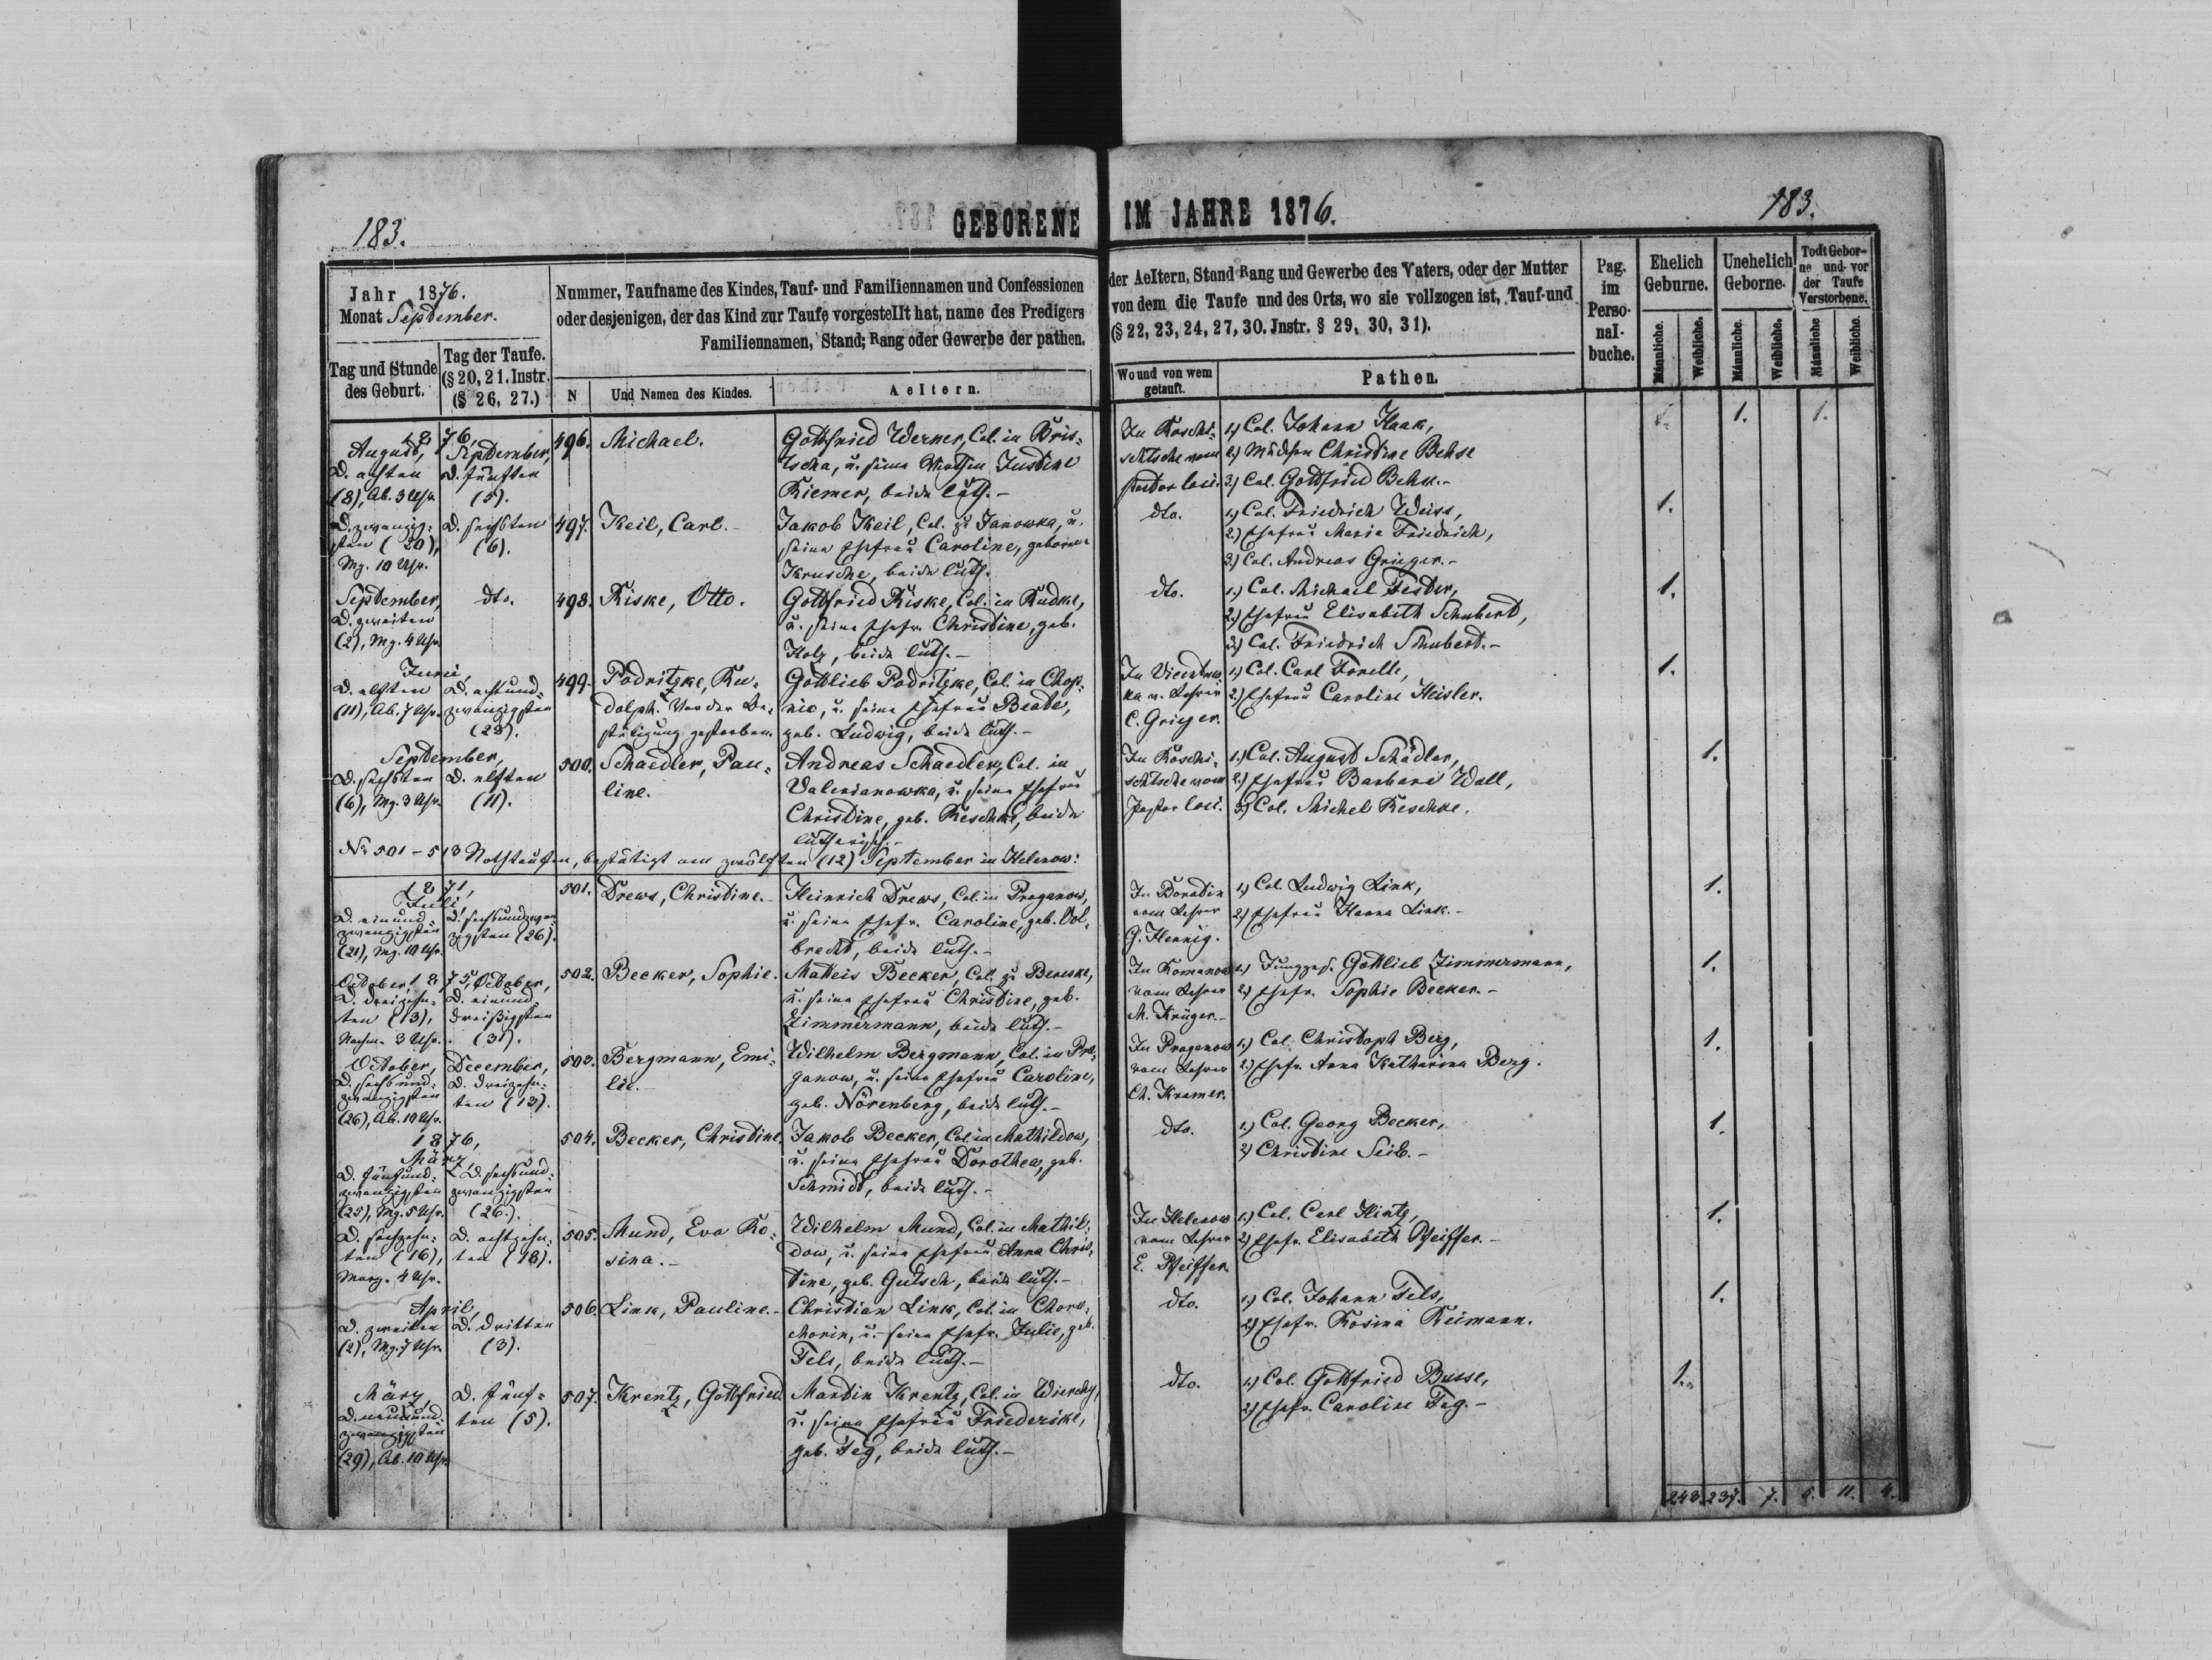 183.
GEBORENE IM JAHRE 1876.
183.
Jahr 1876.
Monat September.
Tag und Stunde
des Geburt.
Tag der Taufe.
(§ 20, 21. Instr.
(§ 26, 27.)
Nummer, Taufname des Kindes, Tauf- und Familiennamen und Confessionen
oder desjenigen, der das Kind zur Taufe vorgestellt hat, name des Predigers
Familiennamen, Stand; Rang oder Gewerbe der pathen.
N
Und Namen des Kindes.
Aeltern.
der Aeltern, Stand Rang und Gewerbe des Vaters, oder der Mutter
von dem die Taufe und des Orts, wo sie vollzogen ist, Tauf-und
(§ 22, 23, 24, 27, 30. Jnstr. § 29, 30, 31).
Wo und von wem
getauft.
Pathen.
Pag.
im
Perso-
nal-
buche.
Ehelich
Geburne.
Unehelich
Geborne.
Todt Gebor-
ne und vor
der Taufe
Verstorbene.
Männliche.
Weibliche.
Männliche.
Weibliche.
Männliche
Weibliche.
1876,
August,
D. achten
(8), Ab. 3 Uhr.
September,
D. fünften
(5).
496. Michael.
Gottfried Werner, Col. in Bris-
tscha, u. seine Justine
Riemer, beide luth.-
In Roschi-
schtsche vom
Pastor loci.
1.) Col. Johann Haak,
2.) Mädchen Christine Behse
3.) Col. Gottfried Behse.-
1. 1.
D. zwanzig-
sten (20),
Mg. 10 Uhr.
D. sechsten
(6).
497. Keil, Carl.-
Jakob Keil, Col. zu Janowka, u.
seine Ehefrau Caroline, geborene
Krusche, beide luth.
dto.
1.) Col. Friedrich Weiss,
2.) Ehefrau Maria Friedrich,
3.) Col. Andreas Grieger.-
1.
September,
D. zweiten
(2), Mg. 4 Uhr.
dto.
498. Riske, Otto.
Gottfried Riske, Col. in Rudke,
u. seine Ehefr. Christine, geb.
Holz, beide luth.-
dto.
1.) Col. Michael Fester,
2.) Ehefrau Elisabeth Schubert,
3.) Col. Friedrich Schubert.-
1.
Juni,
D. elften
(11), Ab. 7 Uhr.
D. achtund-
zwanzigsten
(28).
499. Podritzke, Ru-
dolph. Vor der Be-
stätigung gestorben.
Gottlieb Podritzke, Col. in Chop-
nie, u. seine Ehefrau Beate,
geb. Ludwig, beide luth.-
ka v. Lehrer
C. Grieger.
1.) Col. Carl Forelle,
2.) Ehefrau Caroline Heisler.
1.
September,
D. sechsten
(6), Mg. 3 Uhr.
D. elften
(11).
500. Schaedler, Pau-
line.
Andreas Schaedler, Col. in
Valerianowka, u. seine Ehefrau
Christine, geb. Reschke, beide
lutherisch.-
In Roschi-
schtsche vom
Pastor loci.
1.) Col. August Schädler,
2.) Ehefrau Barbara Wall,
3.) Col. Michel Reschke.
1.
No 501-513 Nothtaufen, bestätigt am zwölften (12) September in Helenow:
1871,
Juli,
D. einund-
zwanzigsten
(21), Mg. 10 Uhr.
D. sechsundzwan-
zigsten (26).
501. Drews, Christine.-
Heinrich Drews, Col. in Praganow,
u. seine Ehefr. Caroline, geb. Vol-
brecht, beide luth.-
In Boradin
vom Lehrer
G. Hennig.
1.) Col. Ludwig Link,
2.) Ehefrau Hanna Link.-
1.
October, 1875, October,
D. dreizehn-
ten (13),
Nachm. 3 Uhr.
D. einund-
dreißigsten
(31).
502. Becker, Sophie.
Matheis Becker, Col. zu Bereske,
u. seine Ehefrau Christine, geb.
Zimmermann, beide luth.-
In Romanow
vom Lehrer
M. Krüger.-
1.) Jungges. Gottlieb Zimmermann,
2.) Ehefr. Sophie Becker.-
1.
October,
D. sechsund-
zwanzigsten
(26), Ab. 10 Uhr.
December,
D. dreizehn-
ten (13).
503. Bergmann, Emi-
lie.-
Wilhelm Bergmann, Col. in Pra-
ganow, u. seine Ehefrau Caroline,
geb. Nörenberg, beide luth.-
In Praganow
vom Lehrer
Ch. Kramer.
1.) Col. Christoph Berg,
2.) Ehefr. Anna Katharina Berg.
1.
1876,
März,
D. fünfund-
zwanzigsten
(25), Mg. 5 Uhr.
D. sechsund-
zwanzigsten
(26).
504. Becker, Christine.
Jakob Becker, Col. in Mathildow,
u. seine Ehefrau Dorothea, geb.
Schmidt, beide luth.-
dto.
1.) Col. Georg Becker,
2.) Christine Seib.-
1.
D. sechzehn-
ten (16),
Morg. 4 Uhr.
D. achtzehn-
ten (18).
505. Mund, Eva Ro-
sina.-
Wilhelm Mund, Col. in Mathil-
dow, u. seine Ehefrau Anna Chris-
tine, geb. Gutsch, beide luth.-
In Helenow
vom Lehrer
E. Pfeiffer.
1.) Col. Carl Hintz,
2.) Ehefr. Elisabeth Pfeiffer.-
1.
April,
D. zweiten
(2), Mg. 7 Uhr.
D. dritten
(3).
506. Link, Pauline.-
Christian Link, Col. in Choro-
chorin, u. seine Ehefr. Julie, geb.
Fels, beide luth.-
dto.
1.) Col. Johann Fels,
2.) Ehefr. Rosina Reimann.
1.
März,
D. neunund-
zwanzigsten
(29), Ab. 10 Uhr.
D. fünf-
ten (5).
507. Krentz, Gottfried.
Martin Krentz, Col. in Wierchy,
u. seine Ehefrau Friederike,
geb. Feg, beide luth.-
dto.
1.) Col. Gottfried Busse,
2.) Ehefr. Caroline Feg.-
1.
248. 237. 7. 5. 11. 4.